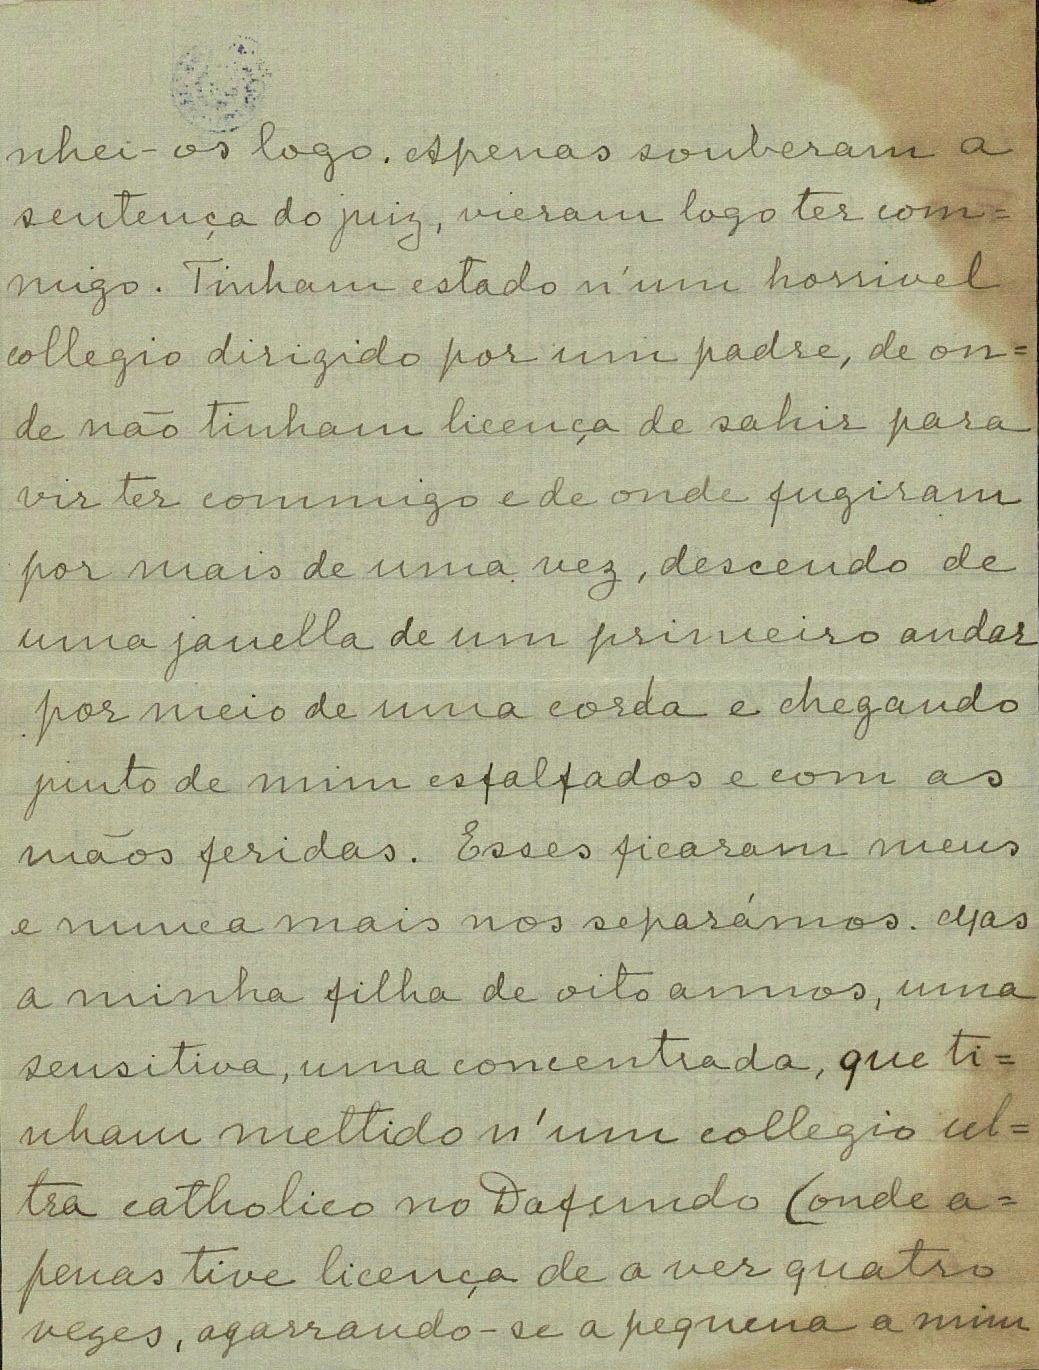 nhei-os logo. Apenas souberam a
sentença do juiz, vieram logo ter com=
migo. Tinham estado n'um horrivel
collegio dirigido por um padre, de on=
de não tinham licença de sahir para
vir ter commigo e de onde fugiram
por mais de uma vez, descendo de
uma janella de um primeiro andar
por meio de uma corda e chegando
junto de mim esfalfados e com as
mãos feridas. Esses ficaram meus
e nunca mais nos separámos. Mas
a minha filha de oito annos, uma
sensitiva, uma concentrada, que ti=
nham mettido n'um collegio ul=
tra catholico no Dafundo (onde a=
penas tive licença de a ver quatro
vezes, agarrando-se a pequena a mim